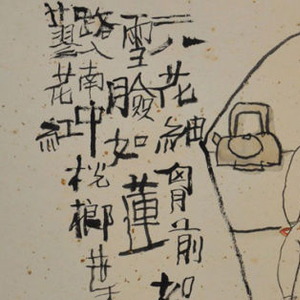 二八花紬胷前如
雪臉如蓮
路入南中桄榔葉
蓼花紅